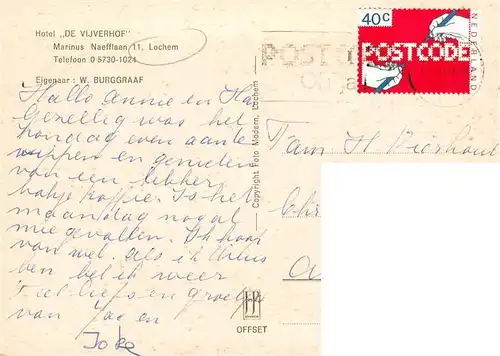 Hotel „DE VIJVERHOF”
Marinus Naefflaan 11, Lochem
Telefoon 0 5730-1024
Eigenaar : W. BURGGRAAF
Hallo Annie en
Gezellig was het
zondag even aan te
wippen en genieten
van een lekker
bakje koffie. Is het
maandag nogal
mee gevallen. Ik hoop
van wel. Als ik thuis
ben bel ik weer
Veel liefs en groetjes
van Jac en
Joke
Copyright Foto Modern, Lochem
OFFSET
40c
POSTCODE
NEDERLAND
POSTCODE
Fam H